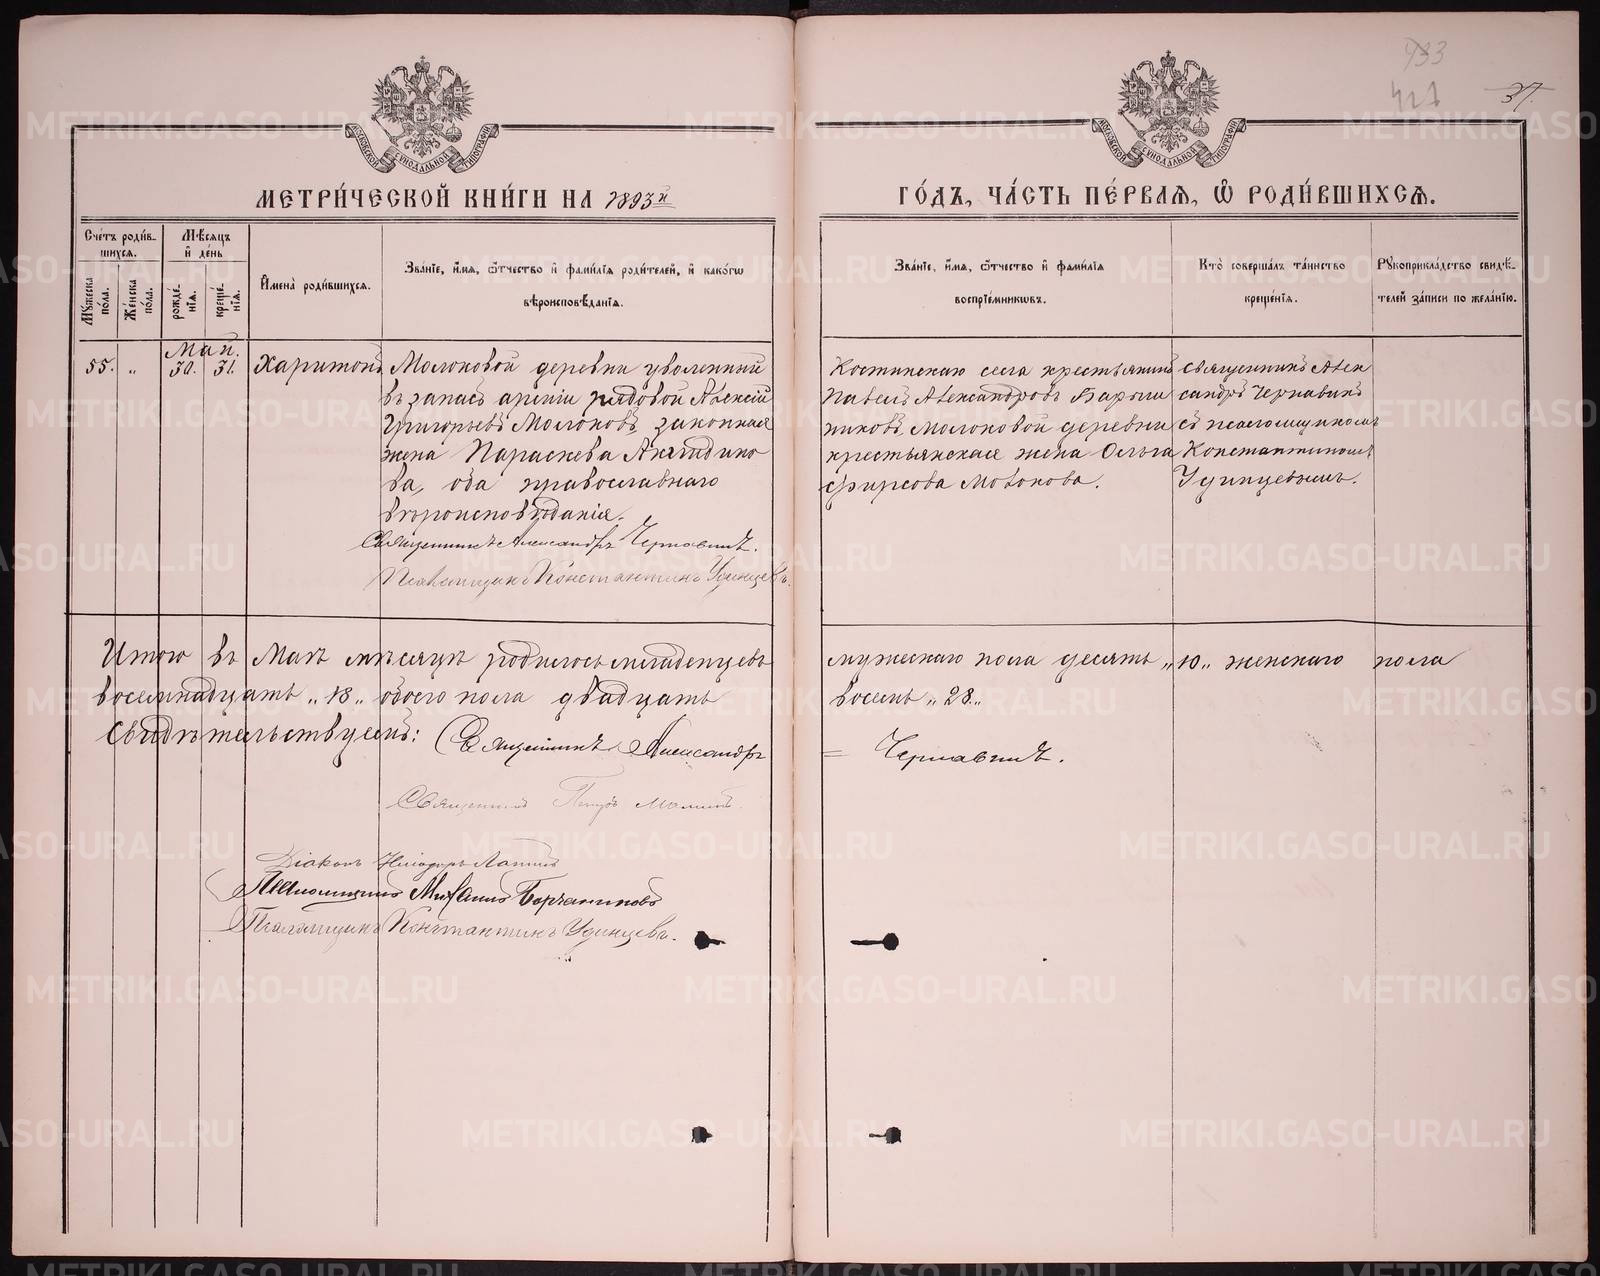 433
427
37.
МОСКОВСКОЙ СѴНОДАЛЬНОЙ ТИПОГРАФІИ
МОСКОВСКОЙ СѴНОДАЛЬНОЙ ТИПОГРАФІИ
МЕТРИ́ЧЕСКОЙ КНИ́ГИ НА 1893й
ГО́ДЪ, ЧА́СТЬ ПЕ́РВАѦ, Ѿ РОДИ́ВШИХСѦ.
Сче́тъ роди́в-
шихсѧ.
Мѣ́сѧцъ
и҆ де́нь
Мꙋ́жеска
по́ла.
Же́нска
по́ла.
рожде́-
нїѧ.
креще́-
нїѧ.
И҆мена̀ роди́вшихсѧ.
Зва́нїе, и҆́мѧ, ѻ҆́тчество и҆ фами́лїѧ роди́телей, и҆ како́гѡ
вѣроисповѣ́данїѧ.
Зва́нїе, и҆́мѧ, ѻ҆́тчество и҆ фами́лїѧ
воспрїе́мниковъ.
Кто̀ соверша́лъ та́инство
креще́нїѧ.
Рꙋкоприкла́дство свидѣ́-
телей за́писи по жела́нїю.
Май.
55. „ 30. 31. Харитонъ
Молоковой деревни уволенный
въ запасъ арміи рядовой Алексій
Григорьевъ Молоковъ, законная
жена Параскева Акиндино
ва, оба православнаго
вѣроисповѣданія.
Священникъ Александръ Чернавинъ.
Псаломщикъ Константинъ Удинцевъ.
Костинскаго села крестьянинъ
Павелъ Александровъ
Молоковой деревни
крестьянская жена Ольга
Фирсова Молокова.
Священникъ Алек
сандръ Чернавинъ
съ псаломщикомъ
Константиномъ
Удинцевымъ.
Итого въ Маѣ мѣсяцѣ родилось младенцевъ мужескаго пола десять „10„ женскаго пола
восемнадцать „18„ обоего пола двадцать восемь „28.„
Свидѣтельствуемъ: Священникъ Александръ = Чернавинъ.
Священникъ Петръ Маминъ.
Діаконъ Ніодоръ Лапинъ
Псаломщикъ Михаилъ
Псаломщикъ Константинъ Удинцевъ.
METRIKI.GASO-URAL.RU